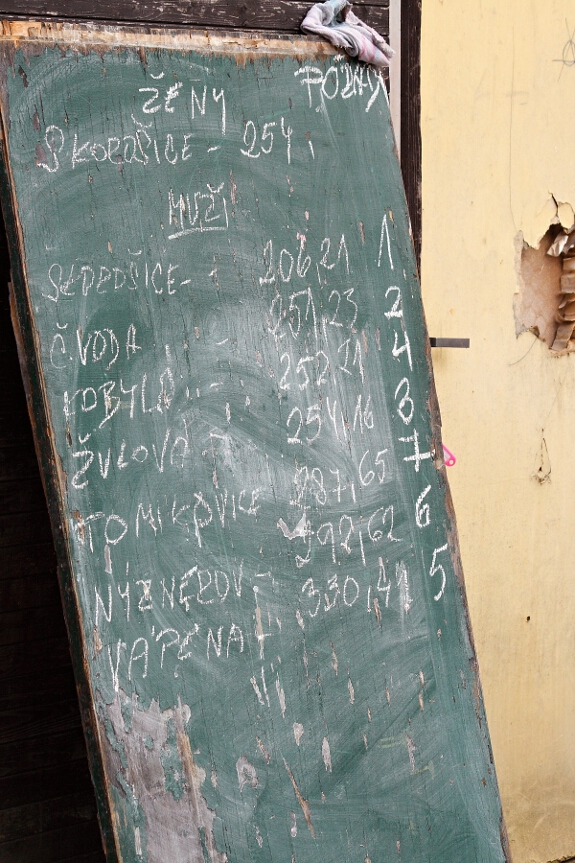 ŽENY POŽÁRY
SKOROŠICE - 254,
MUŽI
SKOROŠICE - 206,21 1
Č. VODA 251,23 2
KOBYLÁ - 252,21 4
ŽULOVÁ 254,16 3
TOMÍKOVICE 287,65 7
NÝZNEROV - 292,62 6
VÁPENÁ 330,41 5